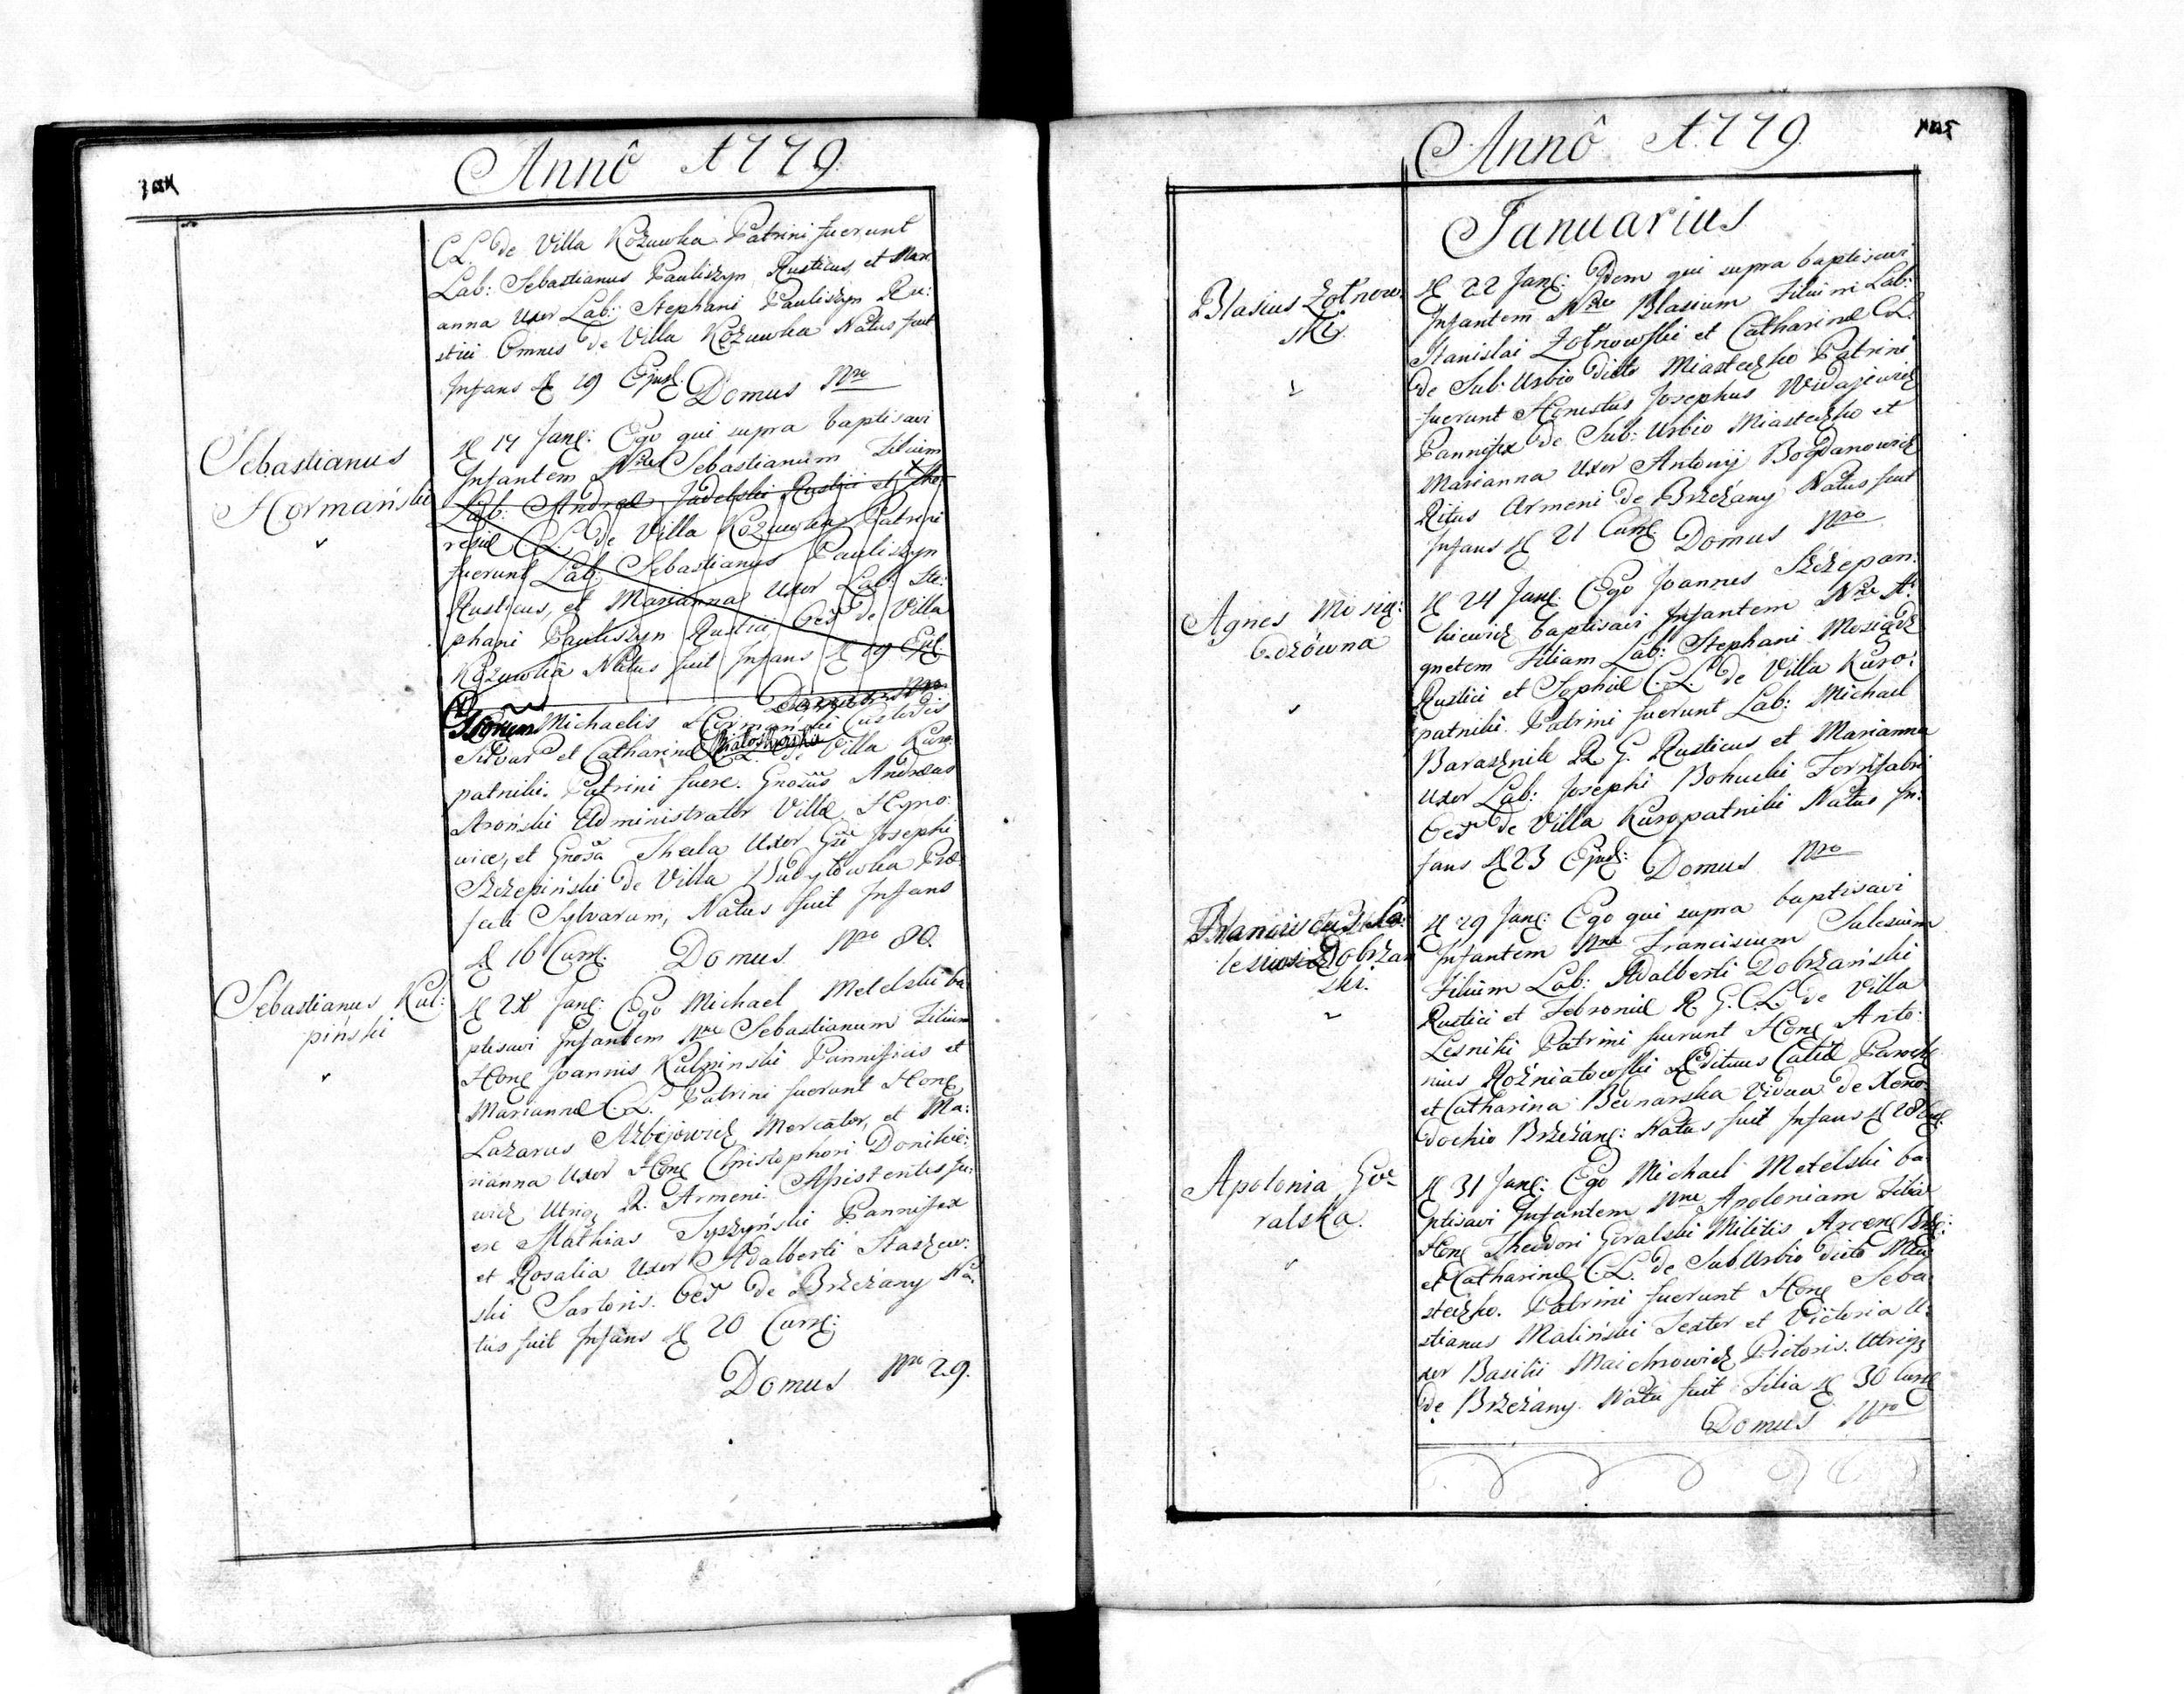 Annô 1779.
C.L. de Villa Kozuwka Patrini fuerunt
Lab: Sebastianus Pauliszyn Rusticus, et Mari
anna Uxor Lab: Stephani Pauliszyn Ru:
stici Omnes de Villa Kozuwka Natus fuit
Infans
19 Ejusd. Domus Nro
Sebastianus
Hormański
17 Jan: Ego qui supra baptisavi
Infantem Nne Sebastianum Filium
Lab: Andreæ Rustici et The
resiæ C.L. de Villa Kozuwka Patrini
fuerunt Lab: Sebastianus Pauliszyn
Rusticus, et Marianna Uxor Lab: Ste:
phani Pauliszyn Rustici de Villa
Kozuwka Natus fuit Infans 19 Ejd.
Michaelis Hormański Custodis
et Catharinæ C.L. de Villa Kuro
patniki. Patrini fuere. Gnosus Andreas
Administrator Villæ Hyno:
wice, et Gnosa Thecla Uxor Gsi Josephi
Szczepiński de Villa Præ
fecti Sylvarum, Natus fuit Infans
16 Curr. Domus Nro 80.
Sebastianus Kul:
piński
21 Jan: Ego Michael Metelski ba
ptisavi Infantem Nne Sebastianum Filium
Hon Joannis Kulpinski Pannificis et
Mariannæ C.L. Patrini fuerunt Hon
Lazarus Mercator, et Ma:
rianna Uxor Hon Christophori Donikie:
wicz Utriq R. Armeni. Assistentes fu:
ere Mathias Tyszyński Pannifex
et Rosalia Uxor Adalberti Staszew:
ski Sartoris. de Brzeżany Na
tus fuit Infans 20 Curr:
Domus Nro 29.
Annô 1779.
Januarius
Blasius Zołnow
ski
22 Jan: Idem qui supra baptisavi
Infantem Nne Blasium Filium Lab:
Stanislai Zołnowski et Catharinæ C.L.
de Sub: Urbio dicto Miasteczko Patrini
fuerunt Honestus Josephus Widajewicz
Pannifex de Sub: Urbio Miasteczko et
Marianna Uxor Antonij Bogdanowicz
Ritus Armeni de Brzeżany Natus fuit
Infans 21 Curr. Domus Nro
Agnes Mosią:
dzówna
24 Jan. Ego Joannes Szczepan:
kiewicz baptisavi Infantem Nne A:
gnetem Filiam Lab: Stephani Mosiądz
Rustici et Sophiæ C.L. de Villa Kuro:
patniki. Patrini fuerunt Lab: Michael
Barasznik R. G. Rusticus et Marianna
Uxor Lab: Josephi Bohucki Ferrifabri
de Villa Kuropatniki Natus In:
fans 23 Ejusd: Domus Nro
Franciscus Sa:
lesius Dobrzań
ski.
29 Jan: Ego qui supra baptisavi
Infantem Nne Franciscum Salesium
Filium Lab: Adalberti Dobrzański
Rustici et Febroniæ R. G. C.L. de Villa
Lesniki Patrini fuerunt Hon Anto:
nius Rożniatowski Ædituus Parochi
et Catharina Bednarska Vidua de Xeno
dochio Brzeżan: Natus fuit Infans 28
Apolonia Go:
ralska.
31 Jan: Ego Michael Metelski ba
ptisavi Infantem Nne Apoloniam Filia
Hon Theodori Goralski Militis Brze:
et Catharinæ C.L. de Sub Urbio dicto Mia
steczko. Patrini fuerunt Hon Seba
stianus Maliński Textor et Victoria U:
xor Basilii Pictoris. Utriq
de Brzeżany. Nata fuit Filia 30 Curr
Domus Nro